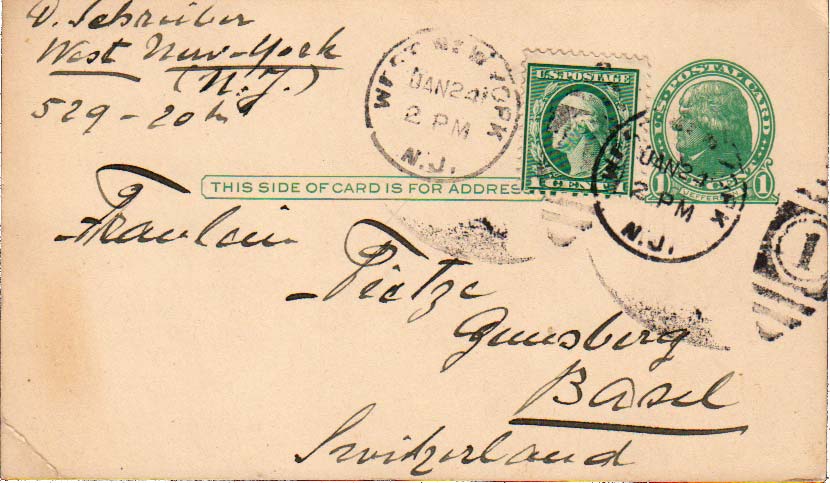 D. Schreiber
West New-York
(N. J.)
529-20th
WEST NEW YORK
JAN 24
2 PM
N.J.
U.S. POSTAGE
U.S. POSTAL CARD
1 1
JEFFERSON
WEST YORK
JAN 24
2 PM
N.J.
1
THIS SIDE OF CARD IS FOR ADDRES
Fraulein
Tietze
Gunsberg
Basel
Switzerland